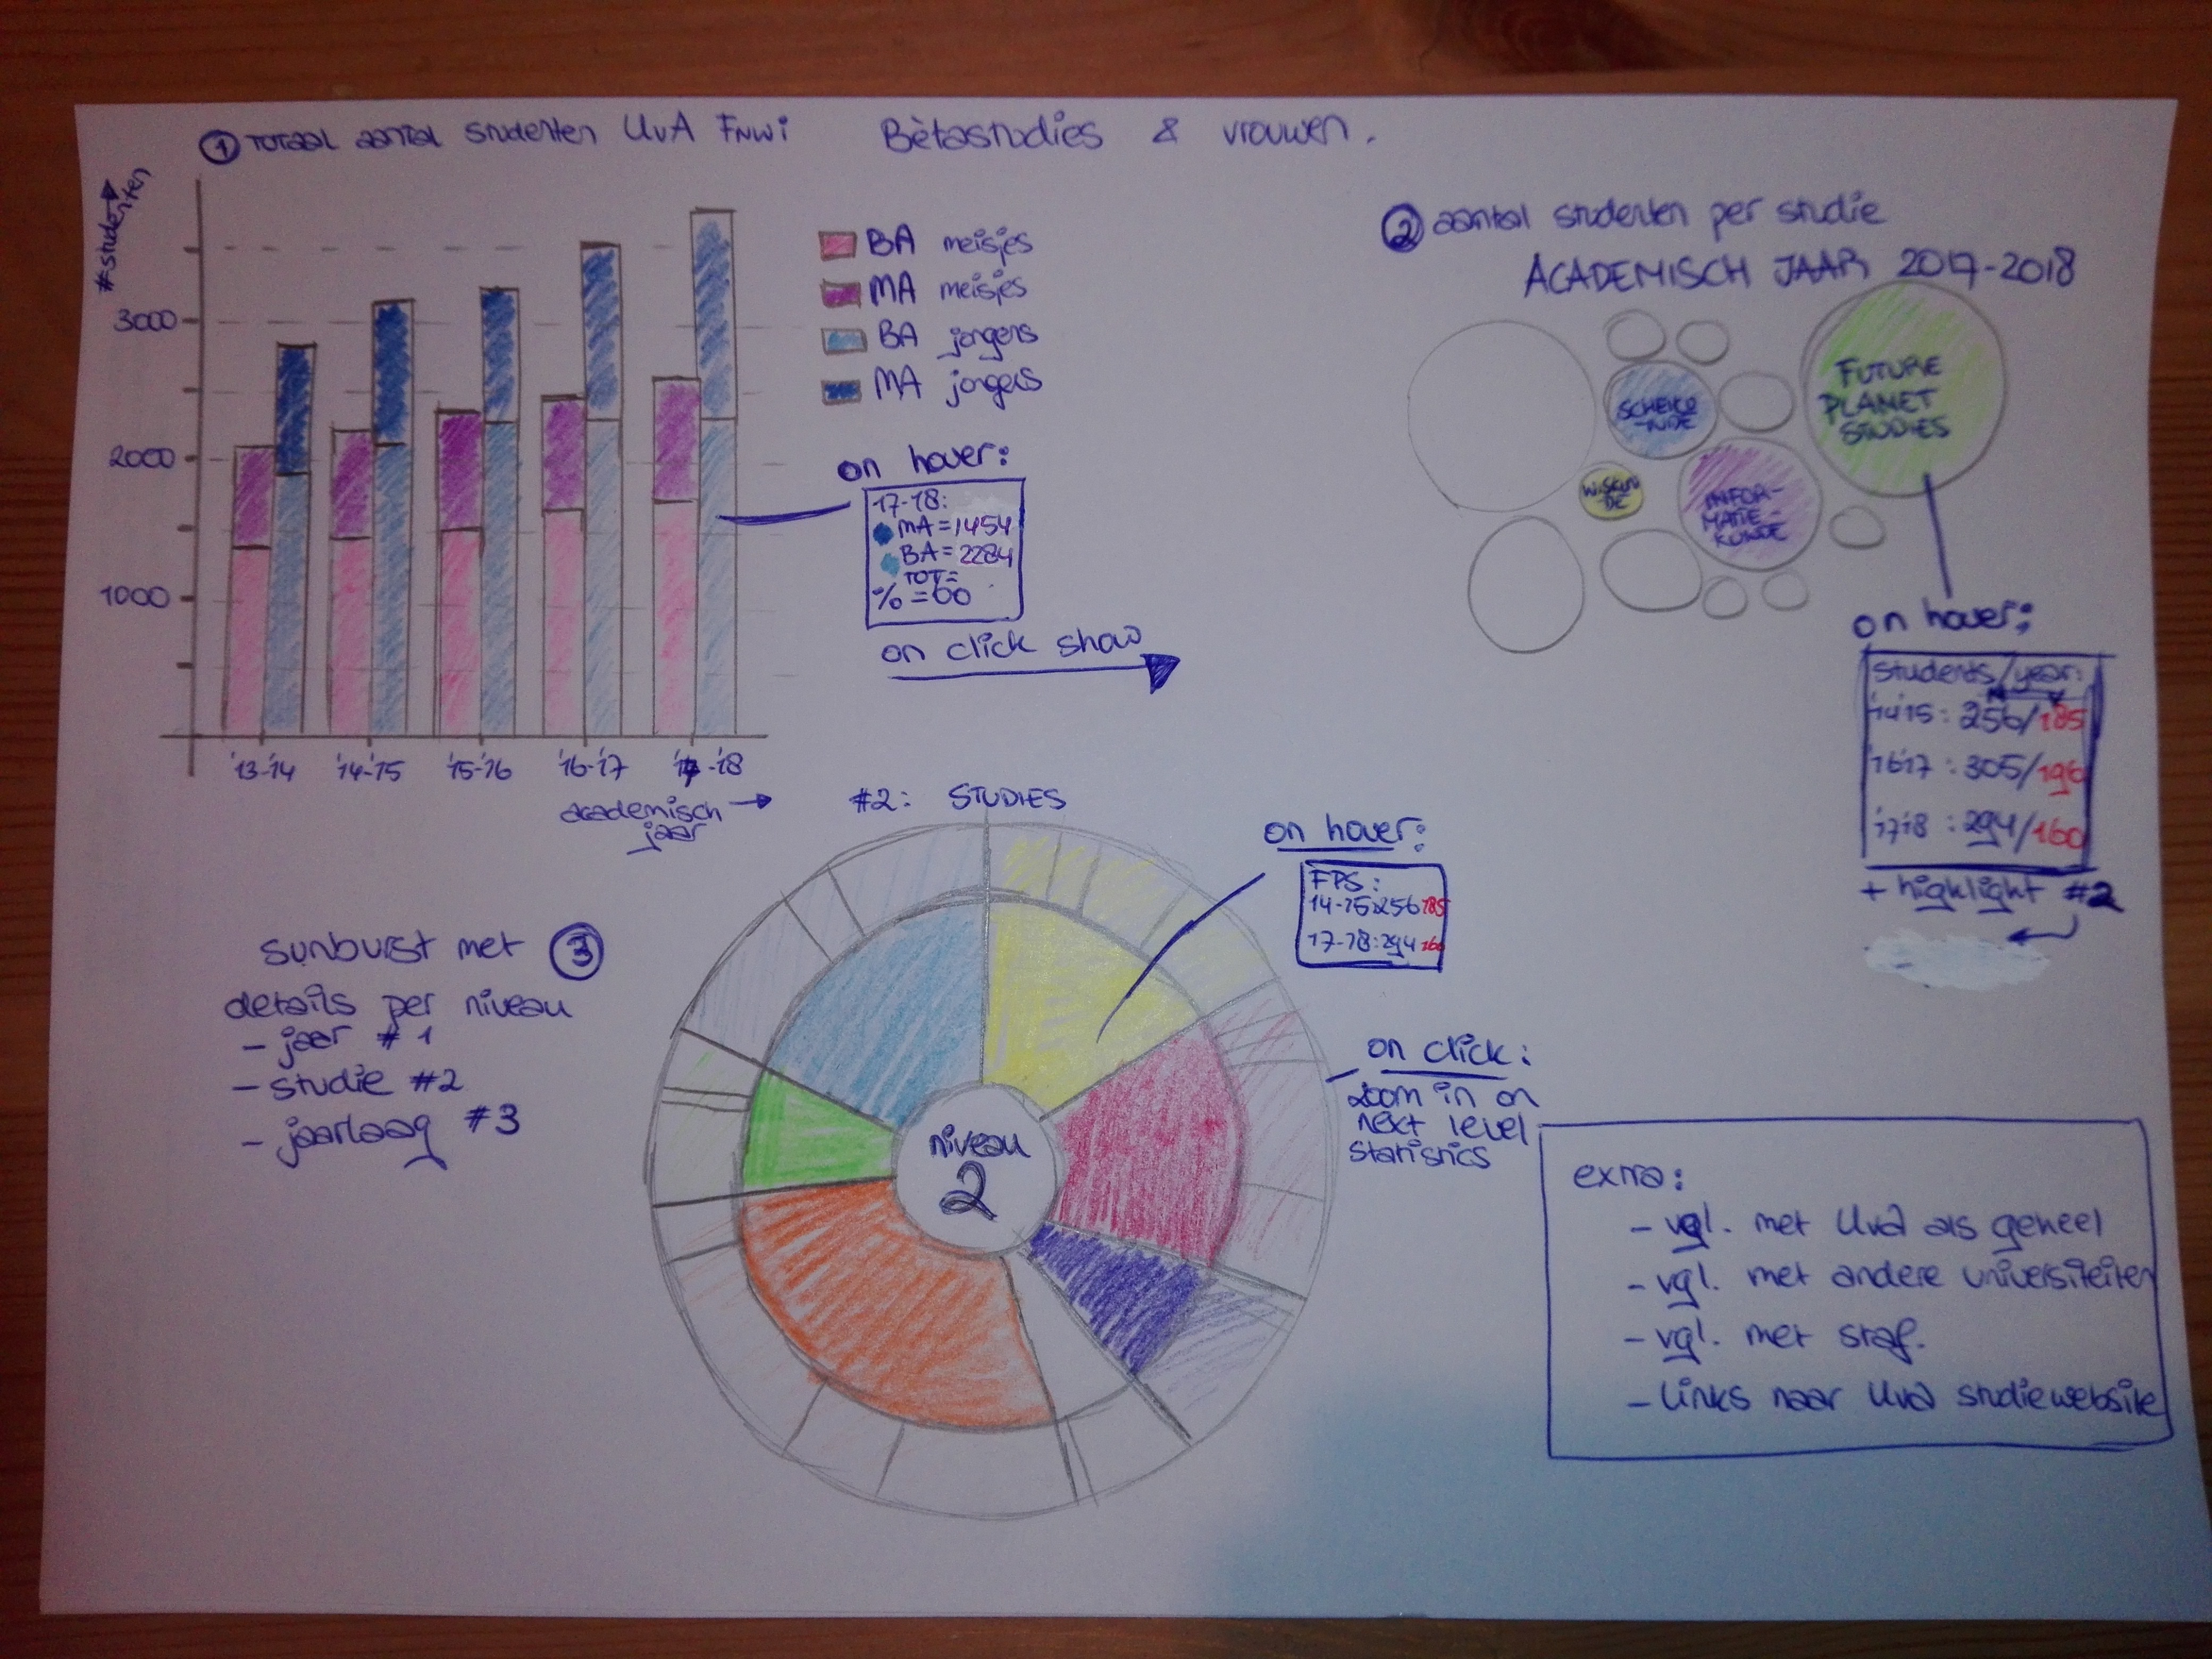 ① Totaal aantal studenten UvA FNWi
Bètastudies & vrouwen.
#studenten
3000
2000
1000
'13-'14
'14-'15
'15-'16
'16-'17
'17-'18
academisch
jaar
BA meisjes
MA meisjes
BA jongens
MA jongens
on hover:
17-18:
MA=1454
BA=2284
TOT=
%=60
on click show
② aantal studenten per studie
ACADEMISCH JAAR 2017-2018
SCHEIKU
-NDE
WISKUN
DE
INFOR-
MATIE-
KUNDE
FUTURE
PLANET
STUDIES
on hover:
students/year:
'14'15: 256/185
'16'17: 305/190
'17'18: 294/160
+ higklight #2
#2: STUDIES
sunburst met ③
details per niveau
- jaar #1
- studie #2
- jaarlaag #3
niveau
2
on hover:
FPS:
14-15:256 185
17-18:294 160
on click:
zoom in on
next level
statistics
extra:
- vgl. met UvA als geheel
- vgl. met andere universiteiten
- vgl. met staf.
- links naar UvA studiewebsite